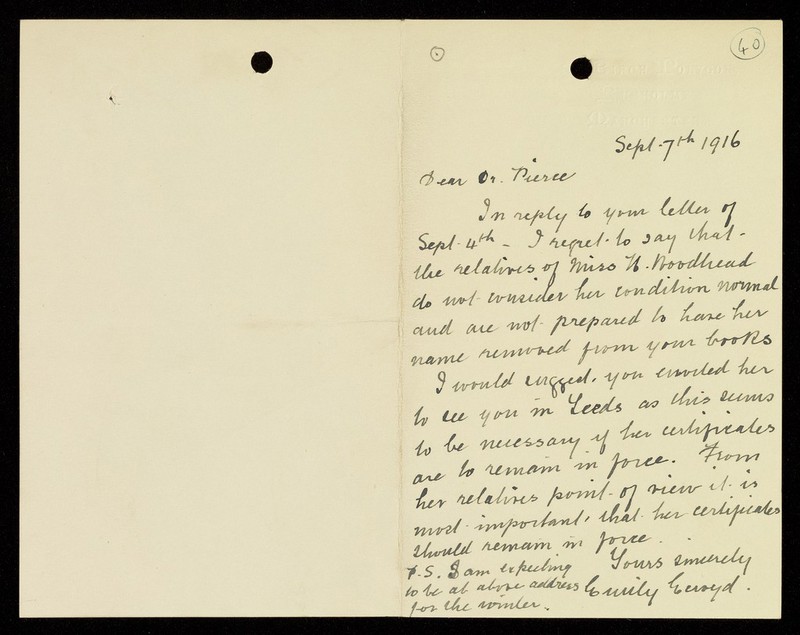 40
Sept. 7th 1916
Dear Dr. Pierce
In reply to your letter of
Sept. 4th - I regret to say that
the relatives of Miss H. Woodhead
do not consider her condition normal
and are not prepared to have her
name removed from your books
I would suggest you invited her
to see you in Leeds as this seems
to be necessary if her certificates
are to remain in force. From
her relatives point of view it is
most important, that her certificates
should remain in force.
Yours sincerely
Emily
P.S. I am expecting
to be at above address
for the winter.